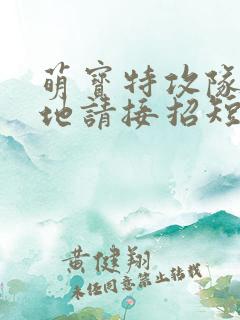 萌寶特攻隊
地請接招短
黃健翔
未經同意禁止轉載